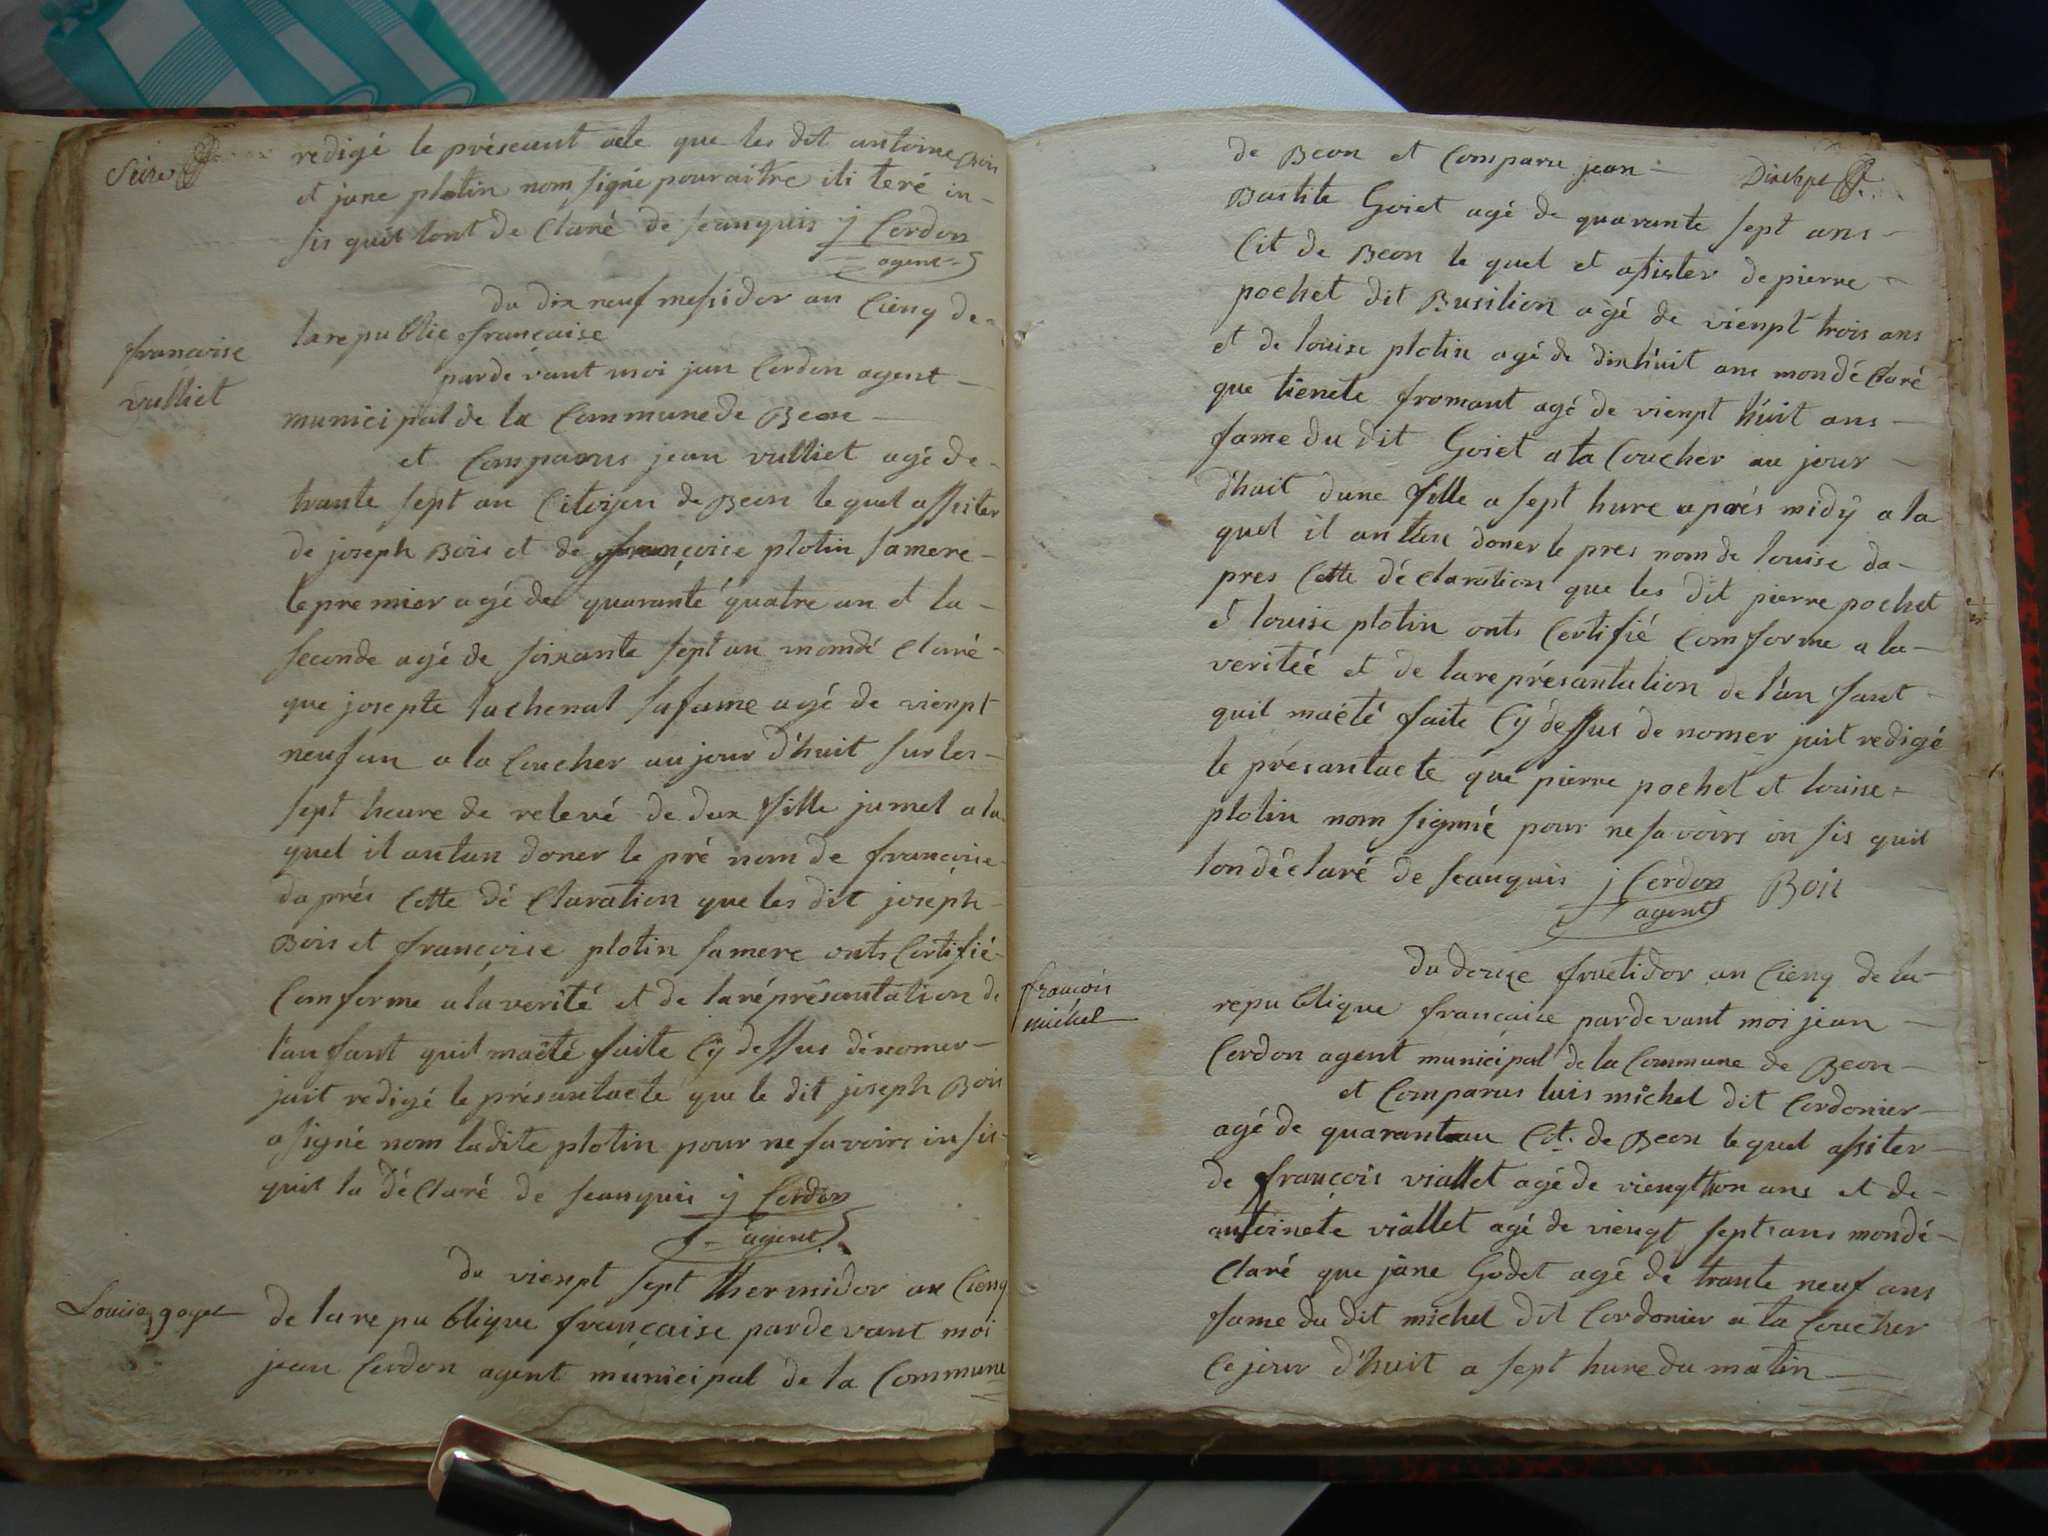 Seize
redigé le préseant acte que les dit antoine Bois
et jane plotin nom signé pour aitre ili teré in-
sis quil lont de Claré de seanquis j Cordon
agent
du dix neuf messidor an Cienq de-
la republic française
francoise
vulliet
parde vant moi jan Cordon agent-
municipal de la Commune de Beon-
et Comparus jean vulliet agé de-
trante sept an Citoijen de Beon le quel assister
de joseph Bois et de françoise plotin samere-
le premier agé de quaranté quatre an et la-
seconde agé de soixante sept an mondé claré-
que josepte lachenal sa fame agé de vienpt
neuf an a la Coucher aujour d'huit sur les-
sept heure de relevé de dux fille jumel a la
quel il antan doner le pré nom de francoise-
daprés Cette dé Claration que les dit joséph-
Bois et françoise plotin samere onts Certifié-
Comforme a la verité et de la réprésantation de
l'an fant quil maété faite Cÿ dessus dénomer-
jait redigé le présantacte que le dit joseph Bois
a signé nom ladite plotin pour ne savoirs in sis-
quil la déClaré de seanquis j Cordon
agent
du vienpt sept thermidor an Cienq
Louise goyet
de la re pu blique française parde vant moi
jean Cordon agent municipal de la Commune
Dixsept
de Beon et Comparu jean-
Bastite Goiet agé de quarante sept ans-
Cit de Beon le quel et asister de pierre-
pochet dit Busilion agé de vienpt trois ans
et de louise plotin agé de dixhuit ans mondé Claré
que tienete fromant agé de vienpt huit ans-
fame du dit Goiet a la Coucher au jour-
d'huit dune fille a sept hure aprés midÿ a la
quel il anttan doner le pres nom de louise da-
pres Cette déClaration que les dit pierre pochet
et louise plotin onts Certifié Comforme a la-
veriteé et de la représantation de l'an fant-
quil maété faite Cÿ dessus de nomer jait redigé
le présantacte que pierre pochet et louise-
plotin nom signné pour ne savoirs in sis quil
londéclaré de seanquis j Cordon Bois
agent
du douze fructidor an Cienq de la-
francois
michel
republique francaise pardevant moi jean-
Cordon agent municipal de la Commune de Beon-
et Comparus luis michel dit Cordonier-
agé de quarantean Cit. de Beon le quel assiter-
de françois viallet agé de viengt hon ans et de-
antoinete viallet agé de viengt sept ans mondé-
Claré que jane Godet agé de trante neuf ans
fame du dit michel dit Cordonier a la Coucher
Ce jour d'huit a sept hure du matin-